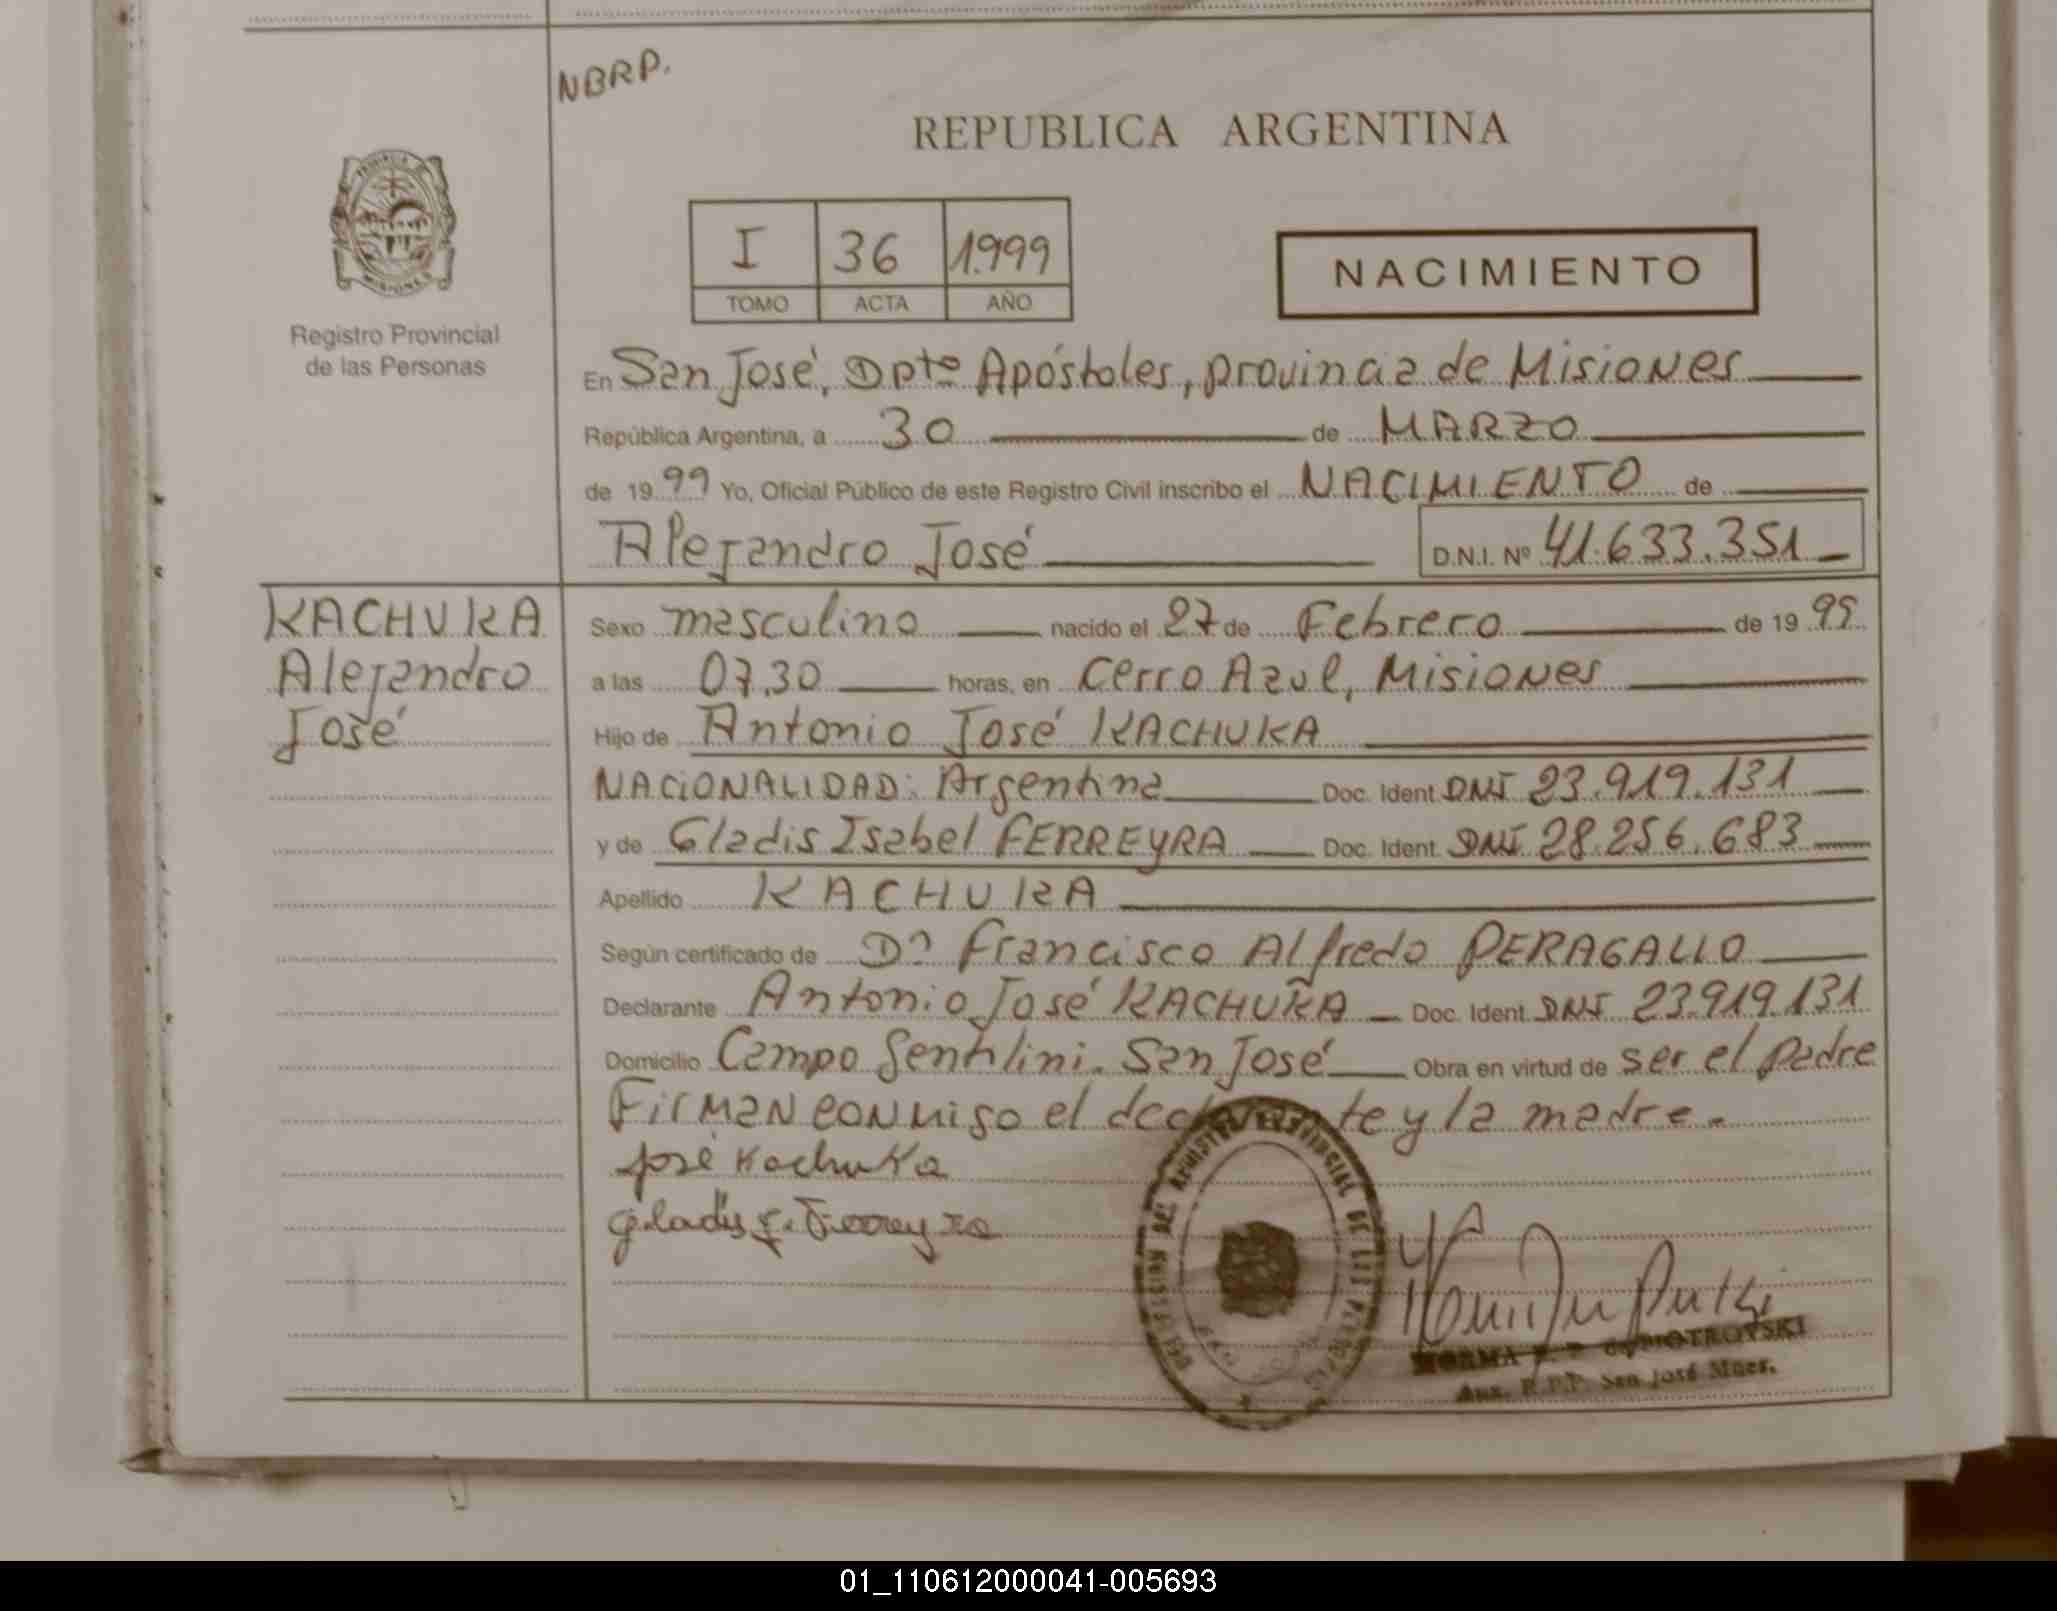 NBRP.
REPUBLICA ARGENTINA
PROVINCIA DE
MISIONES
Registro Provincial
de las Personas
I 36 1.999
TOMO ACTA AÑO
NACIMIENTO
En San José, Dpto Apóstoles, provincia de Misiones
República Argentina, a 30 de MARZO
de 1999 Yo, Oficial Público de este Registro Civil inscribo el NACIMIENTO de
Alejandro José D.N.I. Nº 41.633.351
KACHUKA
Alejandro
José
Sexo masculino nacido el 27 de Febrero de 1999
a las 07,30 horas, en Cerro Azul, Misiones
Hijo de Antonio José KACHUKA
NACIONALIDAD: Argentina Doc. Ident. DNI 23.919.131
y de Gladis Isabel FERREYRA Doc. Ident. DNI 28.256.683
Apellido KACHUKA
Según certificado de Dr Francisco Alfredo PERAGALLO
Declarante Antonio José KACHUKA Doc. Ident. DNI 23.919.131
Domicilio Campo Gentilini. San José Obra en virtud de ser el padre
Firman conmigo el declarante y la madre.
José Kachuka
Gladis I. Ferreyra
DEL REGISTRO PROVINCIAL DE LAS
NORMA de PIOTROVSKI
Aux. R.P.P. San José Mnes.
01_110612000041-005693